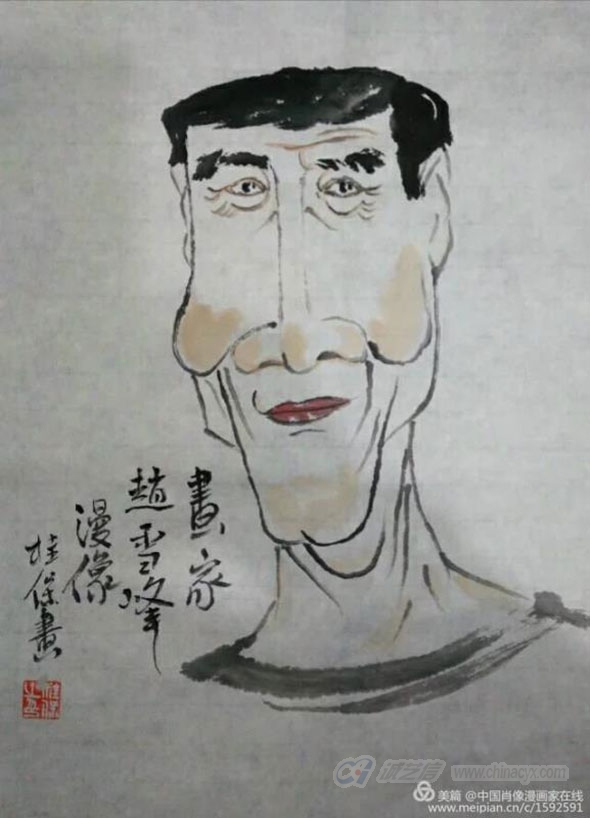 畫家
趙雪峰
漫像
桂保畫
诚艺信 www.chinacyx.com
美篇 @中国肖像漫画家在线
www.meipian.cn/c/1592591